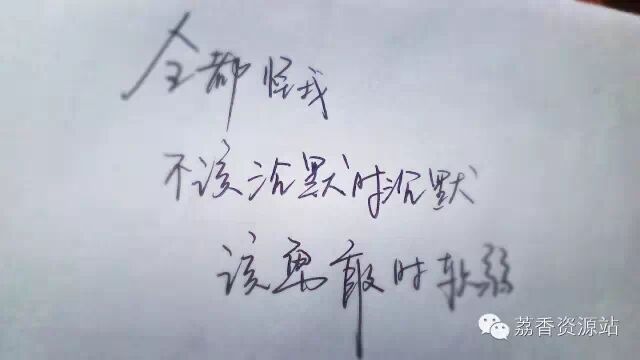 全都怪我
不该沉默时沉默
该勇敢时软弱
荔香资源站